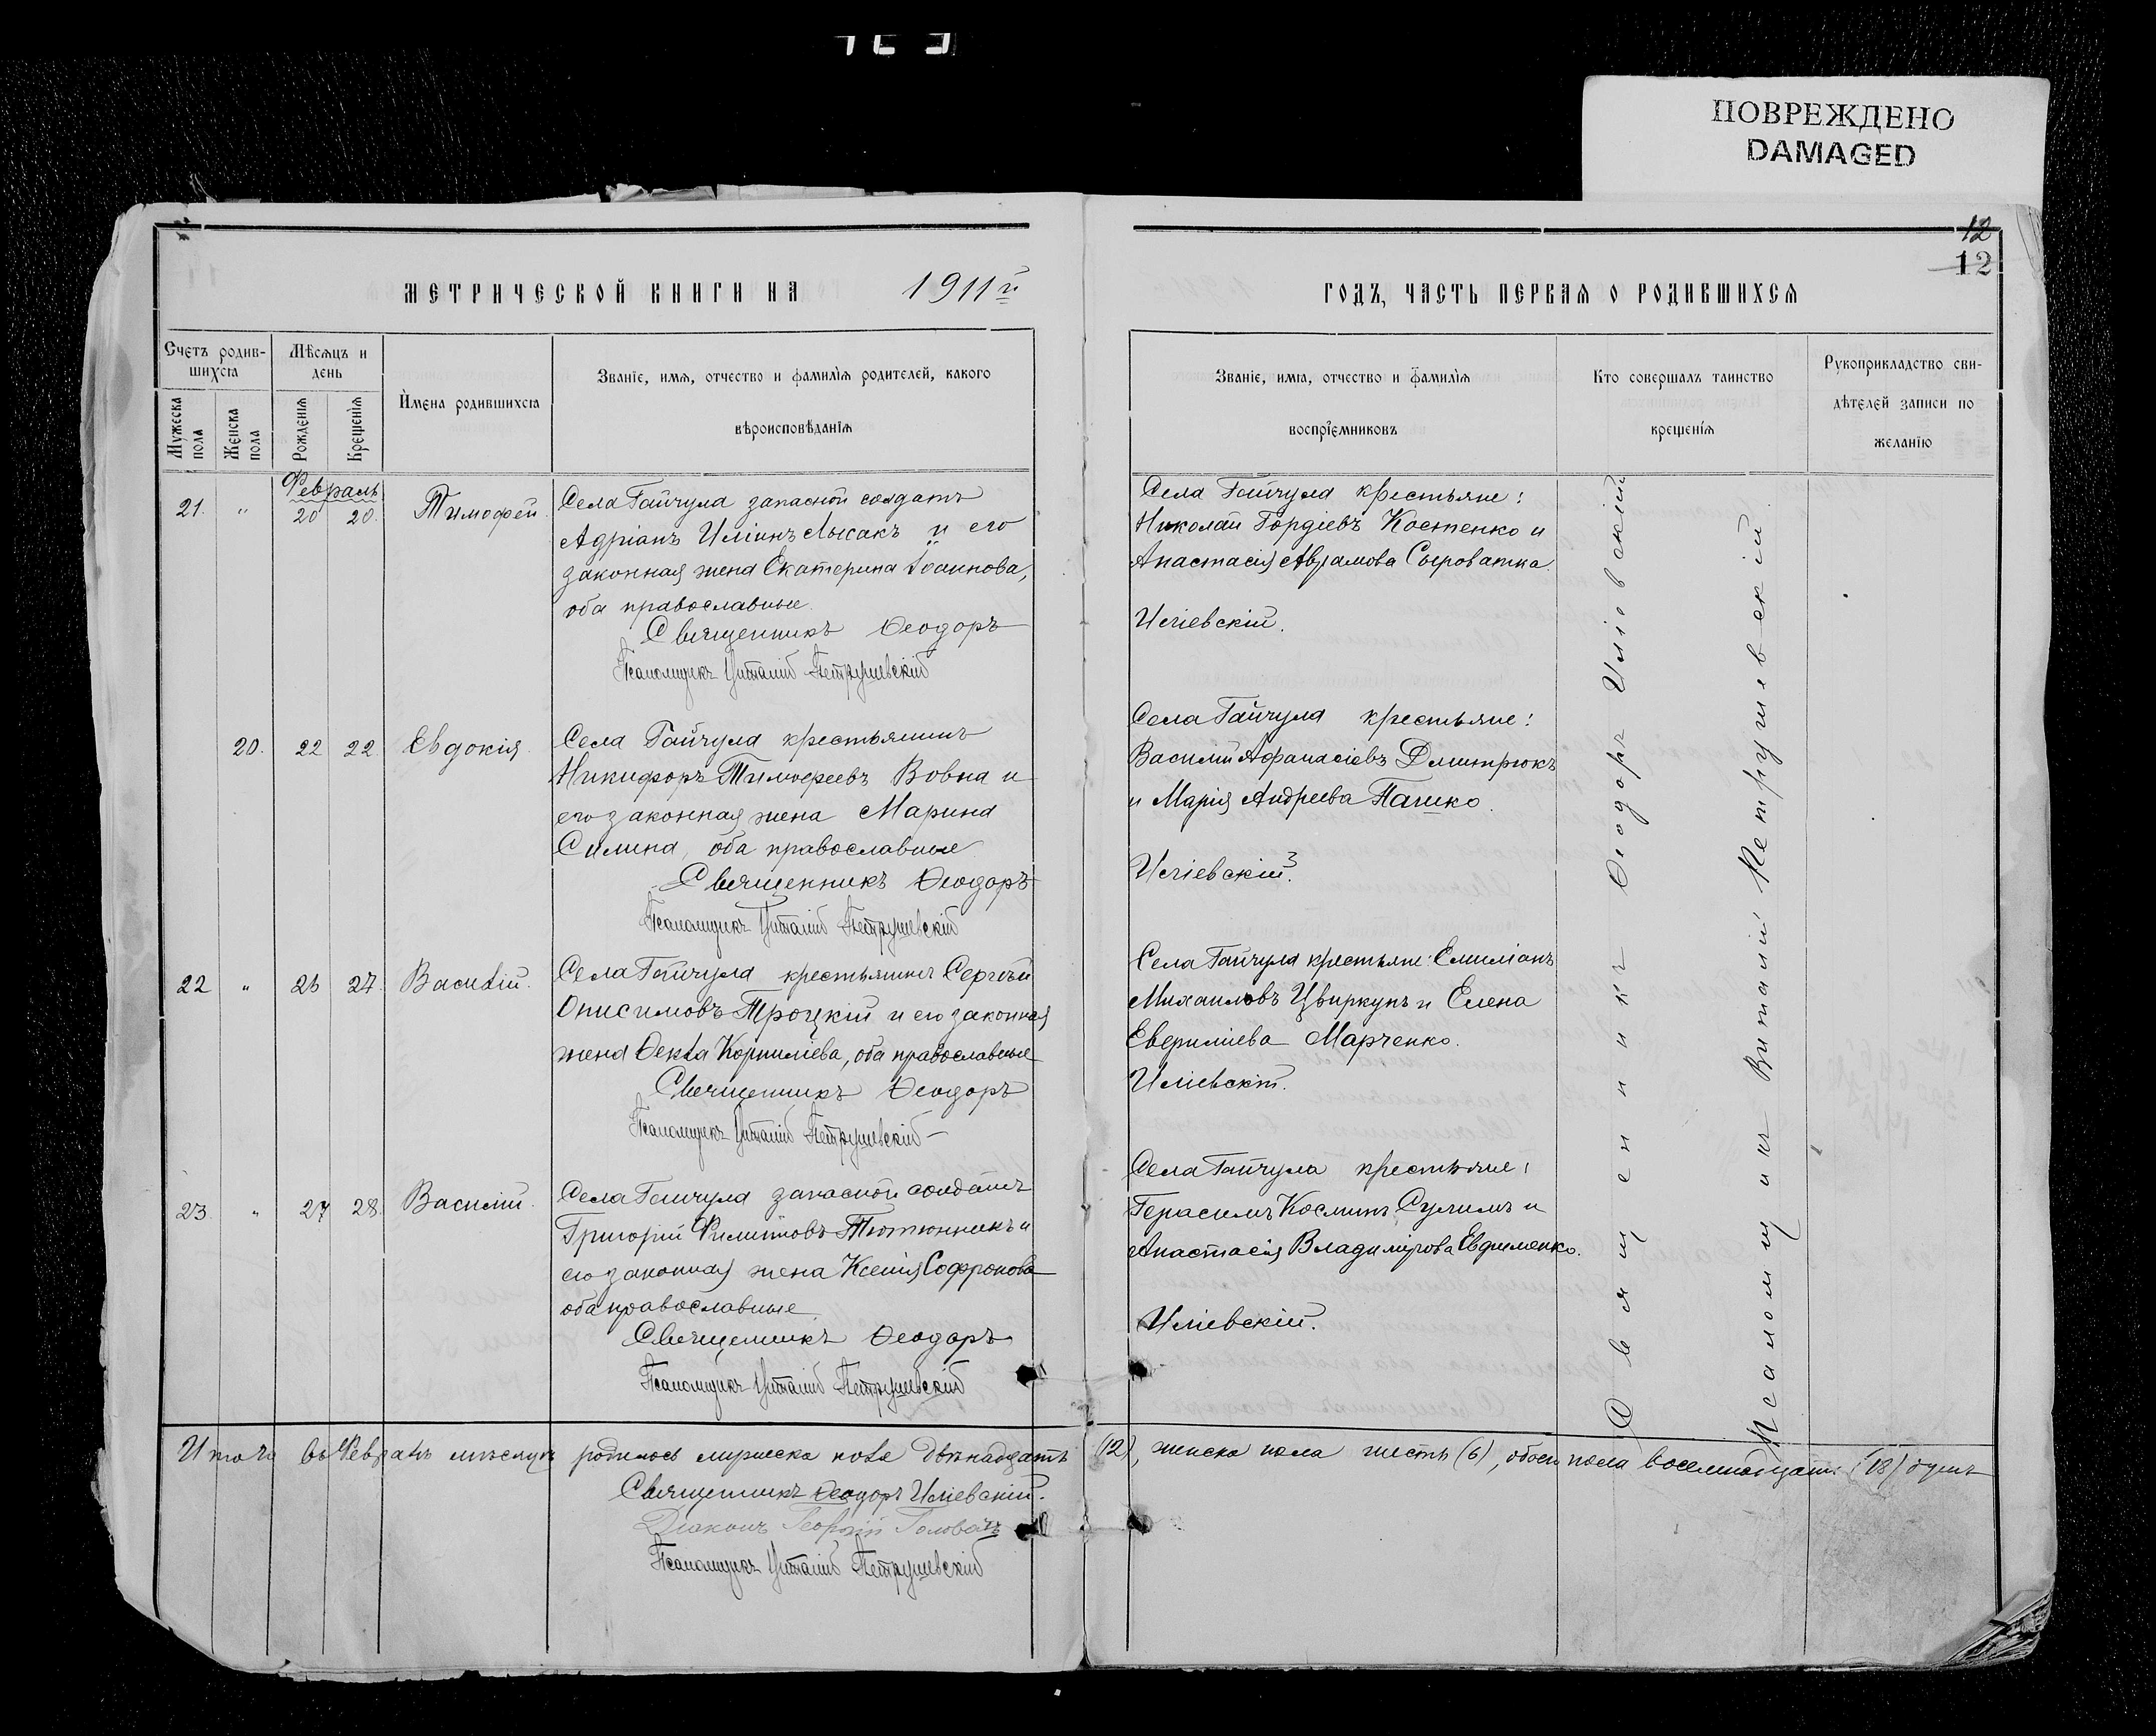 ПОВРЕЖДЕНО
DAMAGED
12
12
МЕТРИЧЕСКОЙ КНИГИ НА 1911й
ГОДЪ, ЧАСТЬ ПЕРВАЯ О РОДИВШИХСЯ
Счетъ родив-
шихся
Мужеска пола
Женска пола
Мѣсяцъ и
день
Рожденія
Крещенія
Имена родившихся
Званіе, имя, отчество и фамилія родителей, какого
вѣроисповѣданія
Званіе, имя, отчество и фамилія
воспріемниковъ
Кто совершалъ таинство
крещенія
Рукоприкладство сви-
дѣтелей записи по
желанію
Февраль
21. " 20 20. Тимофей.
Села Гайчула запасной солдатъ
Адріанъ Иліинъ Лысакъ и его
законная жена Екатерина Іоаннова,
оба православные.
Священникъ Ѳеодоръ
Псаломщикъ Виталій Петрушевскій
Села Гайчула крестьяне:
Николай Гордіевъ Костенко и
Анастасія Аврамова Сыроватка.
Иліевскій.
20. 22 22 Евдокія.
Села Гайчула крестьянинъ
Никифоръ Тимоѳеевъ Вовна и
его законная жена Марина
Силина, оба православные
Священникъ Ѳеодоръ
Псаломщикъ Виталій Петрушевскій
Села Гайчула крестьяне:
Василій Афанасіевъ Дмитрюкъ
и Марія Андреева Пашко.
Иліевскій.
22 " 26 27. Василій.
Села Гайчула крестьянинъ Сергѣй
Онисимовъ Троцкій и его законная
жена Ѳекла Корниліева, оба православные
Священникъ Ѳеодоръ
Псаломщикъ Виталій Петрушевскій
Села Гайчула крестьяне: Емиліанъ
Михаиловъ Цвиркунъ и Елена
Марченко.
Иліевскій.
23. " 27 28. Василій.
Села Гайчула запасной солдатъ
Григорій Филиповъ Тютюнникъ и
его законная жена Ксенія Софронова
оба православные
Священникъ Ѳеодоръ
Псаломщикъ Виталій Петрушевскій
Села Гайчула крестьяне:
Герасимъ Косминъ Сулимъ и
Анастасія Владимірова Евдименко.
Иліевскій.
Священникъ Ѳеодоръ Иліовскій
Псаломщикъ Виталій Петрушевскій.
Итого въ Февралѣ мѣсяцѣ родилось мужеска пола двѣнадцать (12), женска пола шесть (6), обоего пола восемнадцать (18) душъ
Священникъ Ѳеодоръ Иліевскій.
Діаконъ Георгій Головачъ
Псаломщикъ Виталій Петрушевскій